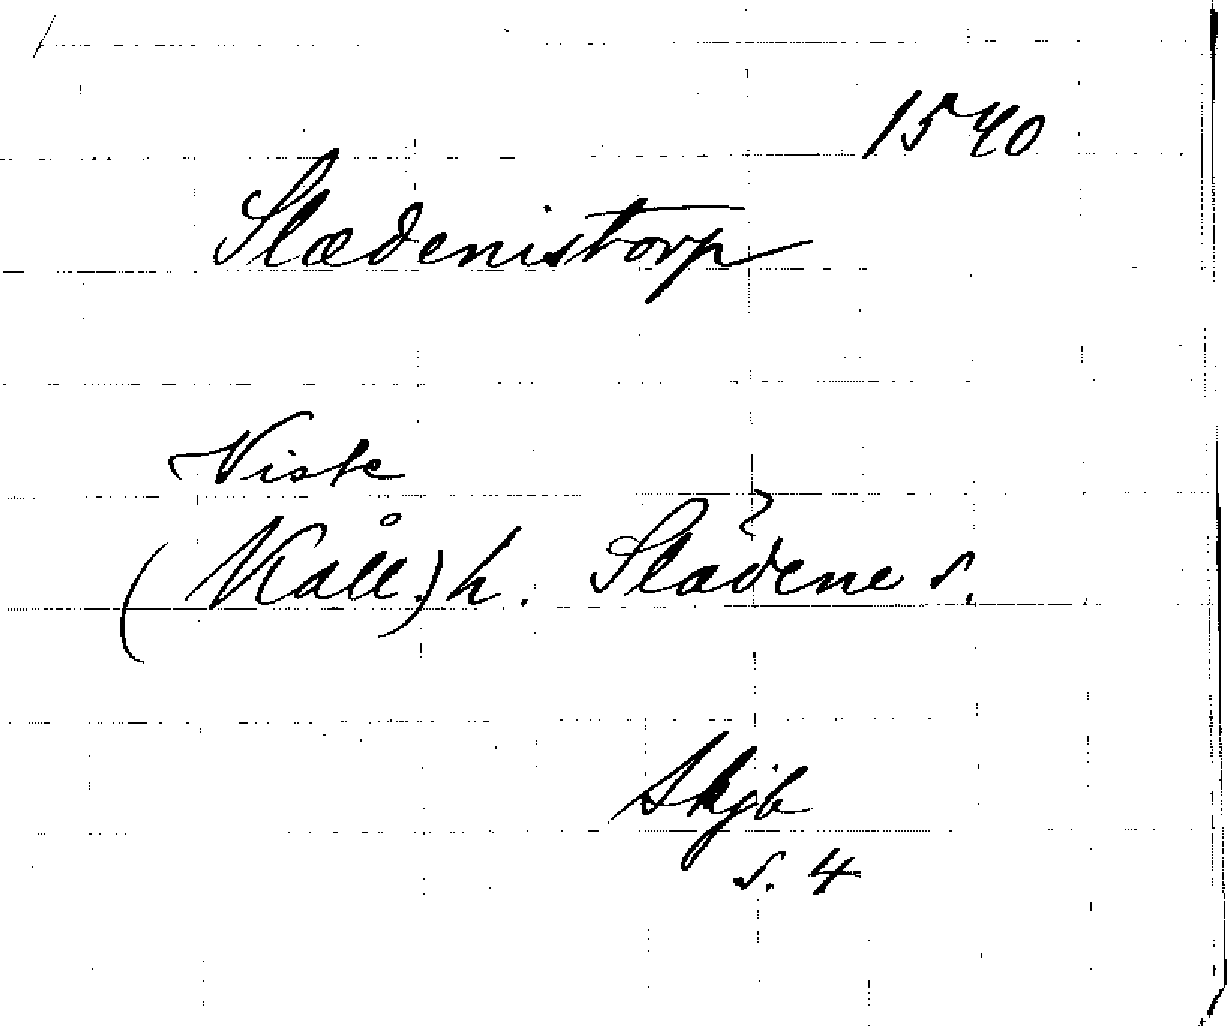 1540
Slædenistorp
Viste
(Kåll.) h. Slädene s.
?
Skjb
s. 4